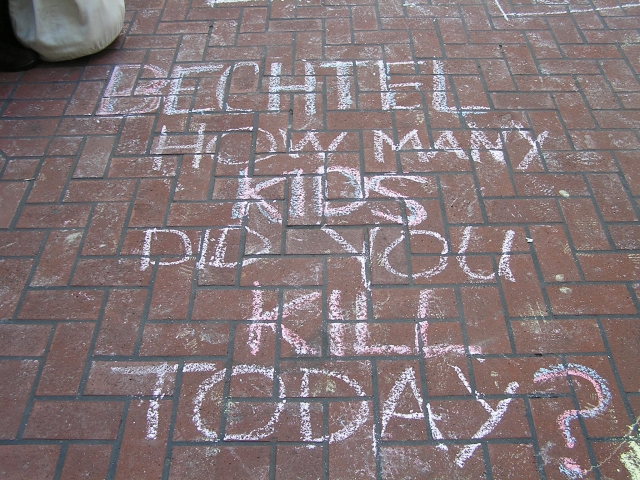 BECHTEL
HOW MANY
KIDS
DID YOU
KILL
TODAY?